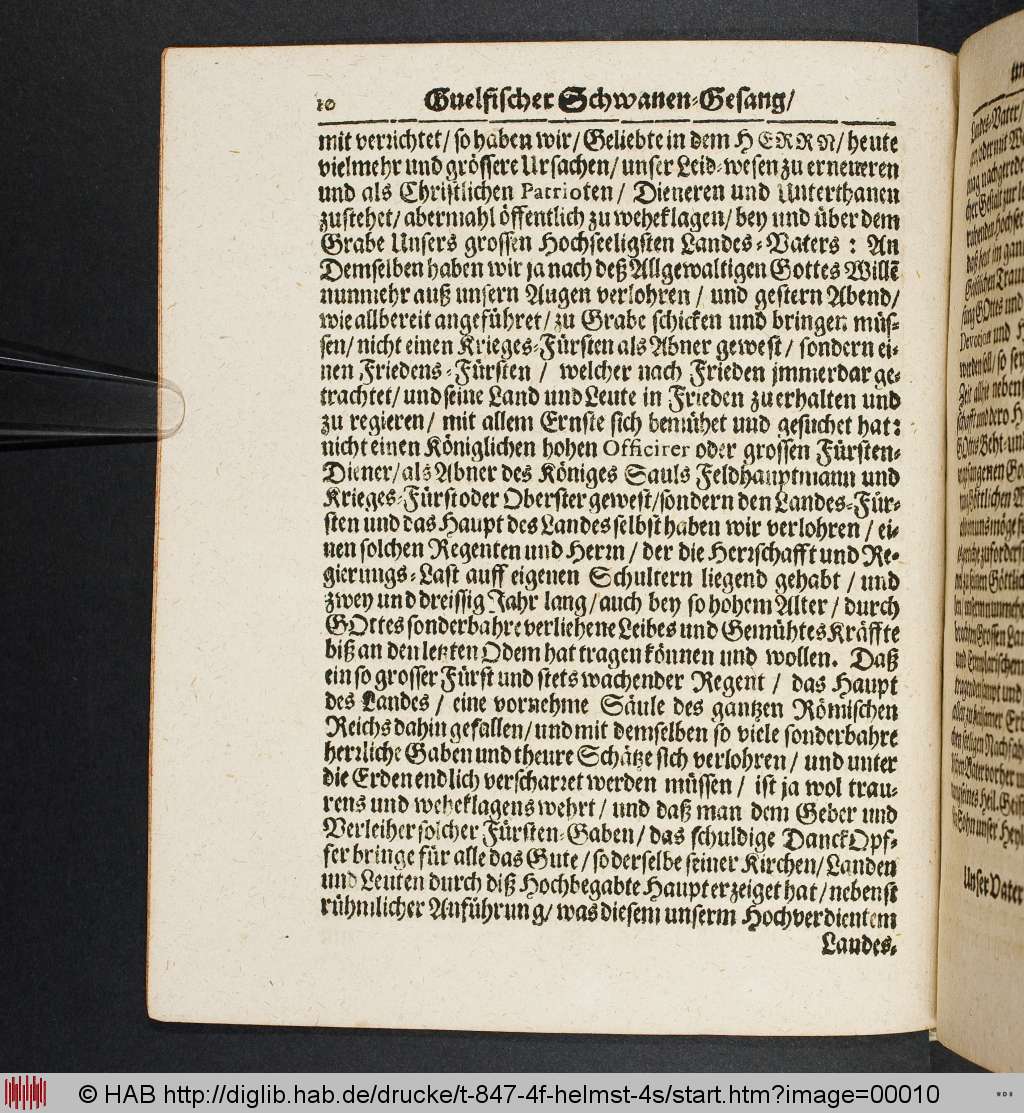 10 Guelfischer Schwanen-Gesang/
mit verrichtet/ so haben wir/ Geliebte in dem HERRN/ heute
vielmehr und grössere Ursachen/ unser Leid-wesen zu erneueren
und als Christlichen Patrioten/ Dieneren und Unterthanen
zustehet/ abermahl öffentlich zu weheklagen/ bey und über dem
Grabe Unsers grossen Hochseeligsten Landes-Vaters: An
Demselben haben wir ja nach deß Allgewaltigen Gottes Willẽ
nunmehr auß unsern Augen verlohren/ und gestern Abend/
wie allbereit angeführet/ zu Grabe schicken und bringen müs-
sen/ nicht einen Krieges-Fürsten als Abner gewest/ sondern ei-
nen Friedens-Fürsten/ welcher nach Frieden jmmerdar ge-
trachtet/ und seine Land und Leute in Frieden zu erhalten und
zu regieren/ mit allem Ernste sich bemühet und gesuchet hat:
nicht einen Königlichen hohen Officirer oder grossen Fürsten-
Diener/ als Abner des Königes Sauls Feldhauptmann und
Krieges-Fürst oder Oberster gewest/ sondern den Landes-Für-
sten und das Haupt des Landes selbst haben wir verlohren/ ei-
nen solchen Regenten und Herrn/ der die Herrschafft und Re-
gierungs-Last auff eigenen Schultern liegend gehabt/ und
zwey und dreissig Jahr lang/ auch bey so hohem Alter/ durch
GOttes sonderbahre verliehene Leibes und Gemühtes Kräffte
biß an den letzten Odem hat tragen können und wollen. Daß
ein so grosser Fürst und stets wachender Regent/ das Haupt
des Landes/ eine vornehme Säule des gantzen Römischen
Reichs dahin gefallen/ und mit demselben so viele sonderbahre
herrliche Gaben und theure Schätze sich verlohren/ und unter
die Erden endlich verscharret werden müssen/ ist ja wol trau-
rens und weheklagens wehrt/ und daß man dem Geber und
Verleiher solcher Fürsten-Gaben/ das schuldige DanckOpf-
fer bringe für alle das Gute/ so derselbe seiner Kirchen/ Landen
und Leuten durch diß Hochbegabte Haupt erzeiget hat/ nebenst
rühmlicher Anführung/ was diesem unserm Hochverdientem
Landes-
Unser Vater
© HAB http://diglib.hab.de/drucke/t-847-4f-helmst-4s/start.htm?image=00010